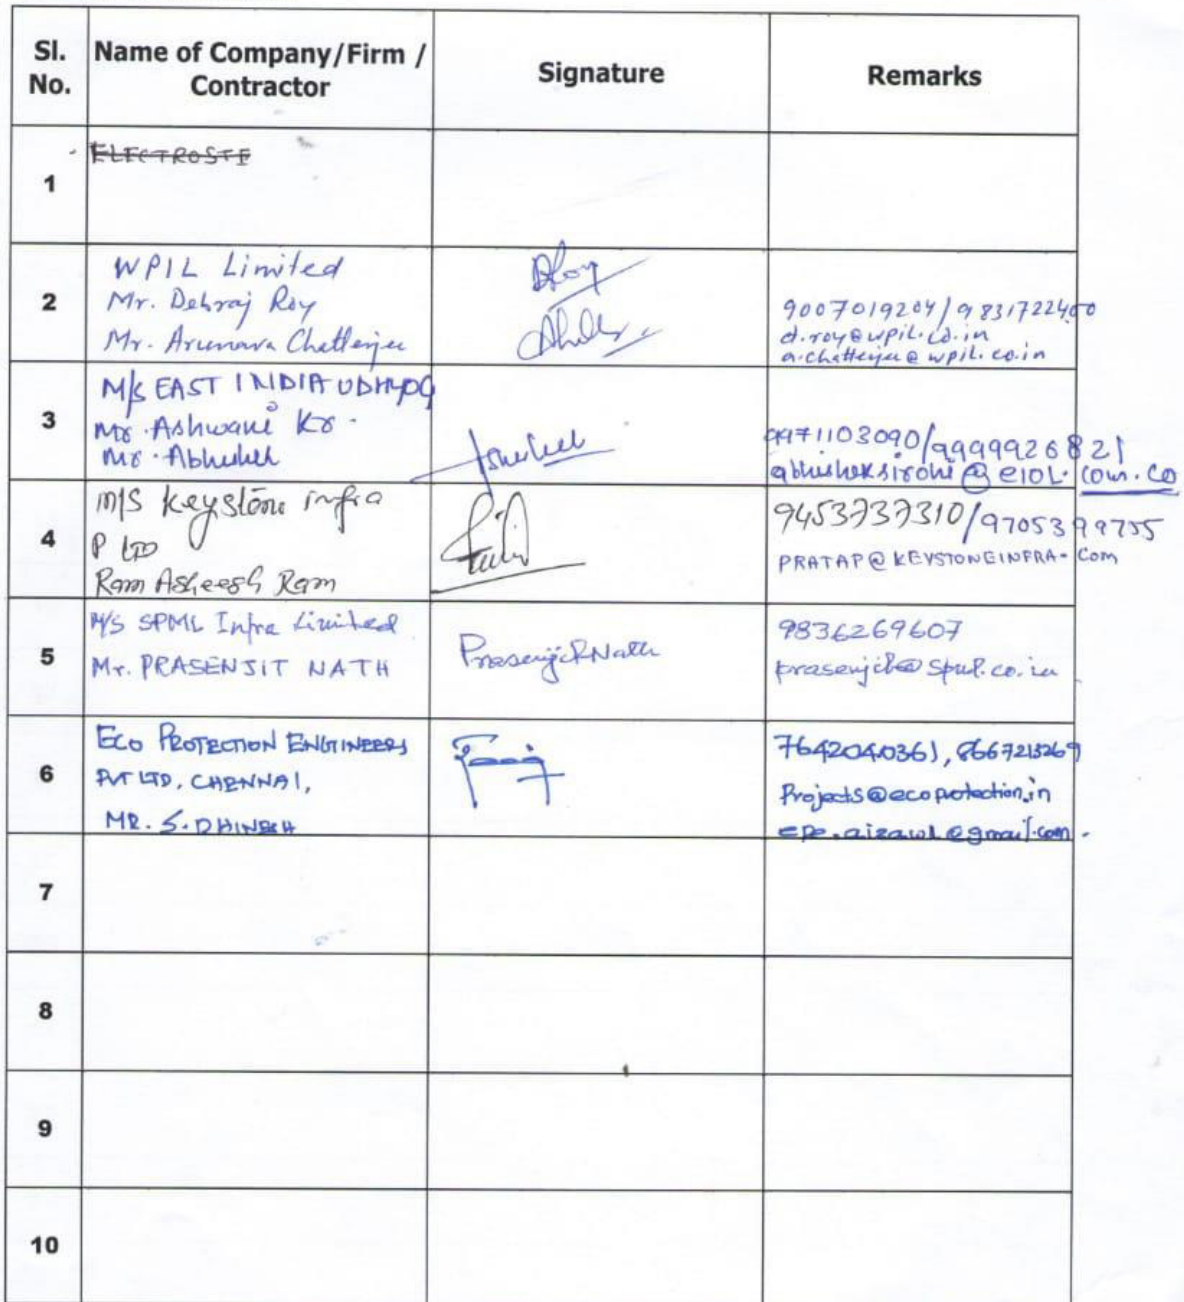 Sl. No.
Name of Company/Firm / Contractor
Signature
Remarks
1
ELECTROSTE
2
WPIL Limited
Mr. Debraj Roy
Mr. Arunava Chatterjee
DRoy
9007019204/9831722400
d.roy@wpil.co.in
a.chatterjee@wpil.co.in
3
M/s EAST INDIA UDHYOG
Mr. Ashwani Kr.
Mr. Abhishek
9971103090/9999926821
abhisheksirohi@eiol.com.co
4
M/S Keystone infra
P LTD
Ram Asheesh Ram
9453737310/9705399755
PRATAP@KEYSTONEINFRA.Com
5
M/S SPML Infra Limited
Mr. PRASENJIT NATH
Prasenjit Nath
9836269607
prasenjit@spml.co.in
6
ECO PROTECTION ENGINEERS
PVT LTD, CHENNAI,
MR. S. DHINESH
7642040361, 8667213269
Projects@ecoprotection.in
epe.aizawl@gmail.com.
7
8
9
10